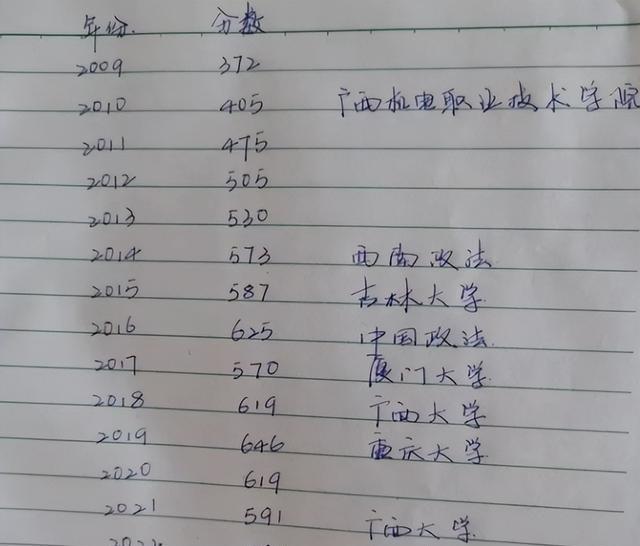 年份 分数
2009 372
2010 405 广西机电职业技术学院
2011 475
2012 505
2013 530
2014 573 西南政法
2015 587 吉林大学
2016 625 中国政法
2017 570 厦门大学
2018 619 广西大学
2019 646 重庆大学
2020 619
2021 591 广西大学